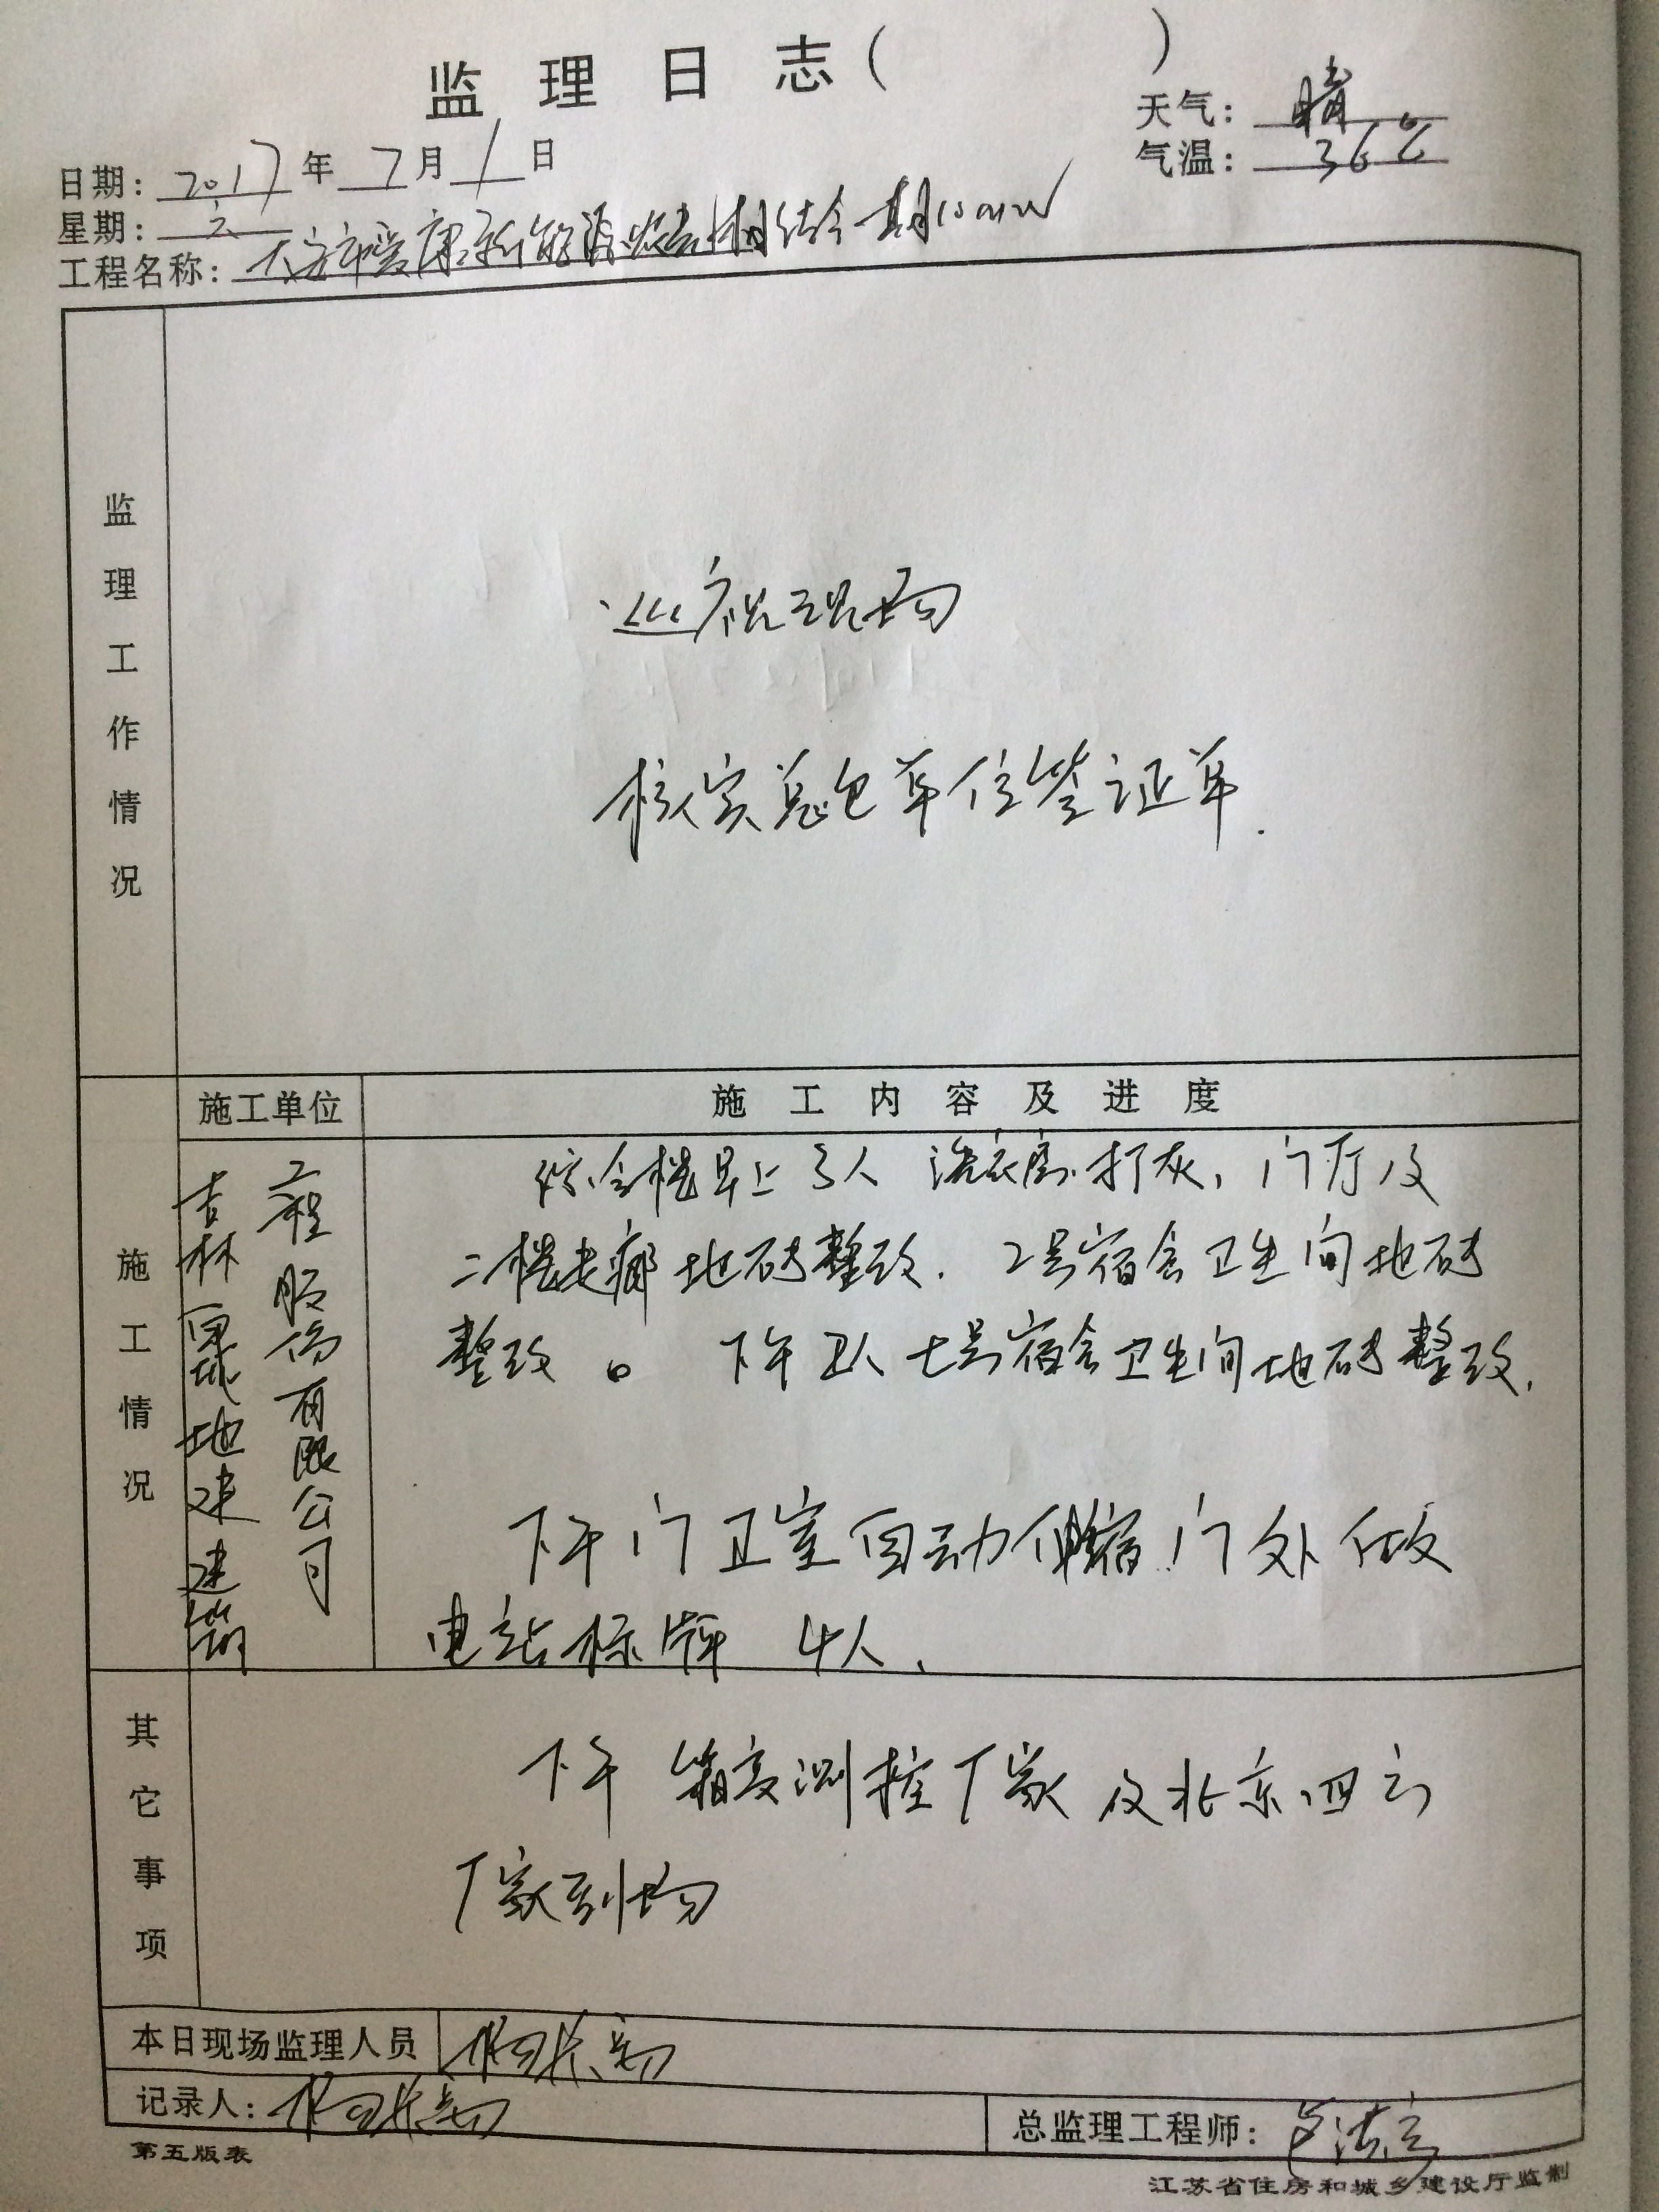 监理日志（ ）
天气：晴
气温：36℃
日期：2017年7月1日
星期：六
工程名称：大安市爱康新能源牧光相结合一期10MW
监理工作情况
巡视现场
核实总包单位签证单.
施工单位
施工内容及进度
施工情况
吉林省地建建筑
工程股份有限公司
综合楼早上3人 洗衣房打灰，门厅及
二楼走廊地砖整改. 2号宿舍卫生间地砖
整改。 下午 人七号宿舍卫生间地砖整改.
下午门卫室自动伸缩门处做
电站标牌 4人.
其它事项
下午 箱变测控厂家及北京四方
厂家到场
本日现场监理人员
记录人：
总监理工程师：
第五版表
江苏省住房和城乡建设厅监制